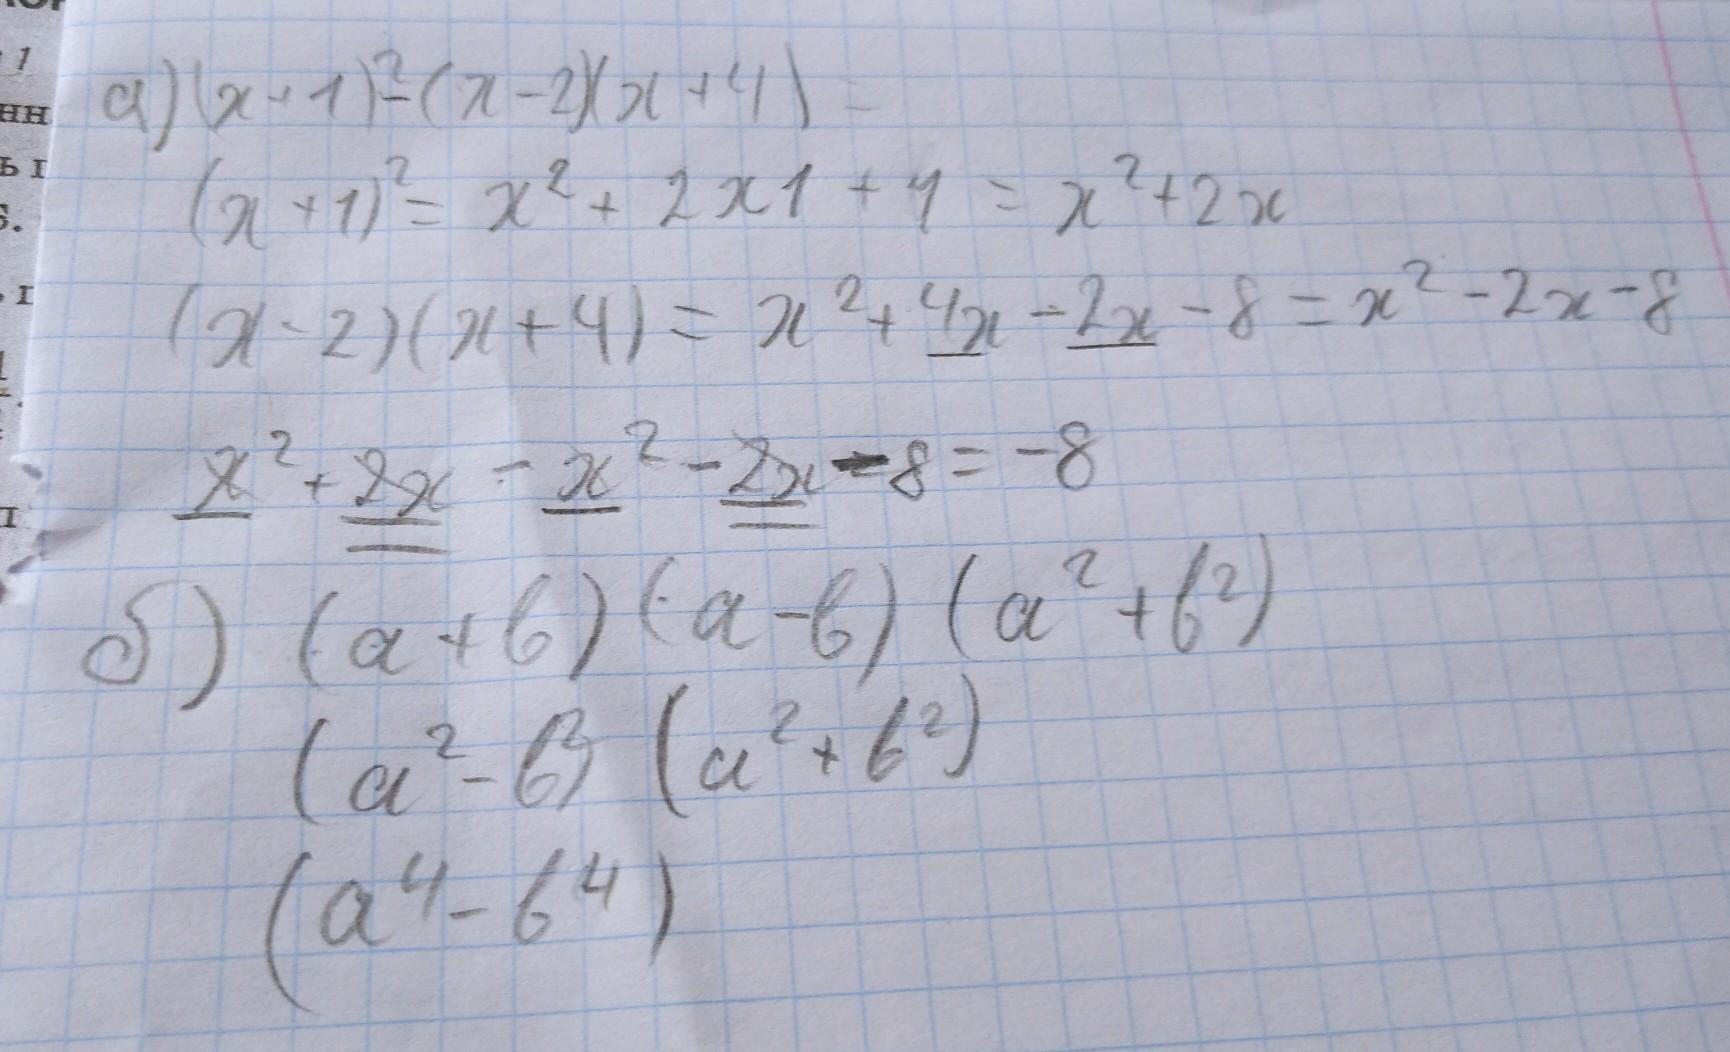 а) (x+1)² - (x-2)(x+4) =
(x+1)² = x² + 2x1 + 1 = x² + 2x
(x-2)(x+4) = x² + 4x - 2x - 8 = x² - 2x - 8
x² + 2x - x² - 2x - 8 = -8
б) (a+b)(a-b)(a²+b²)
(a²-b²)(a²+b²)
(a⁴-b⁴)